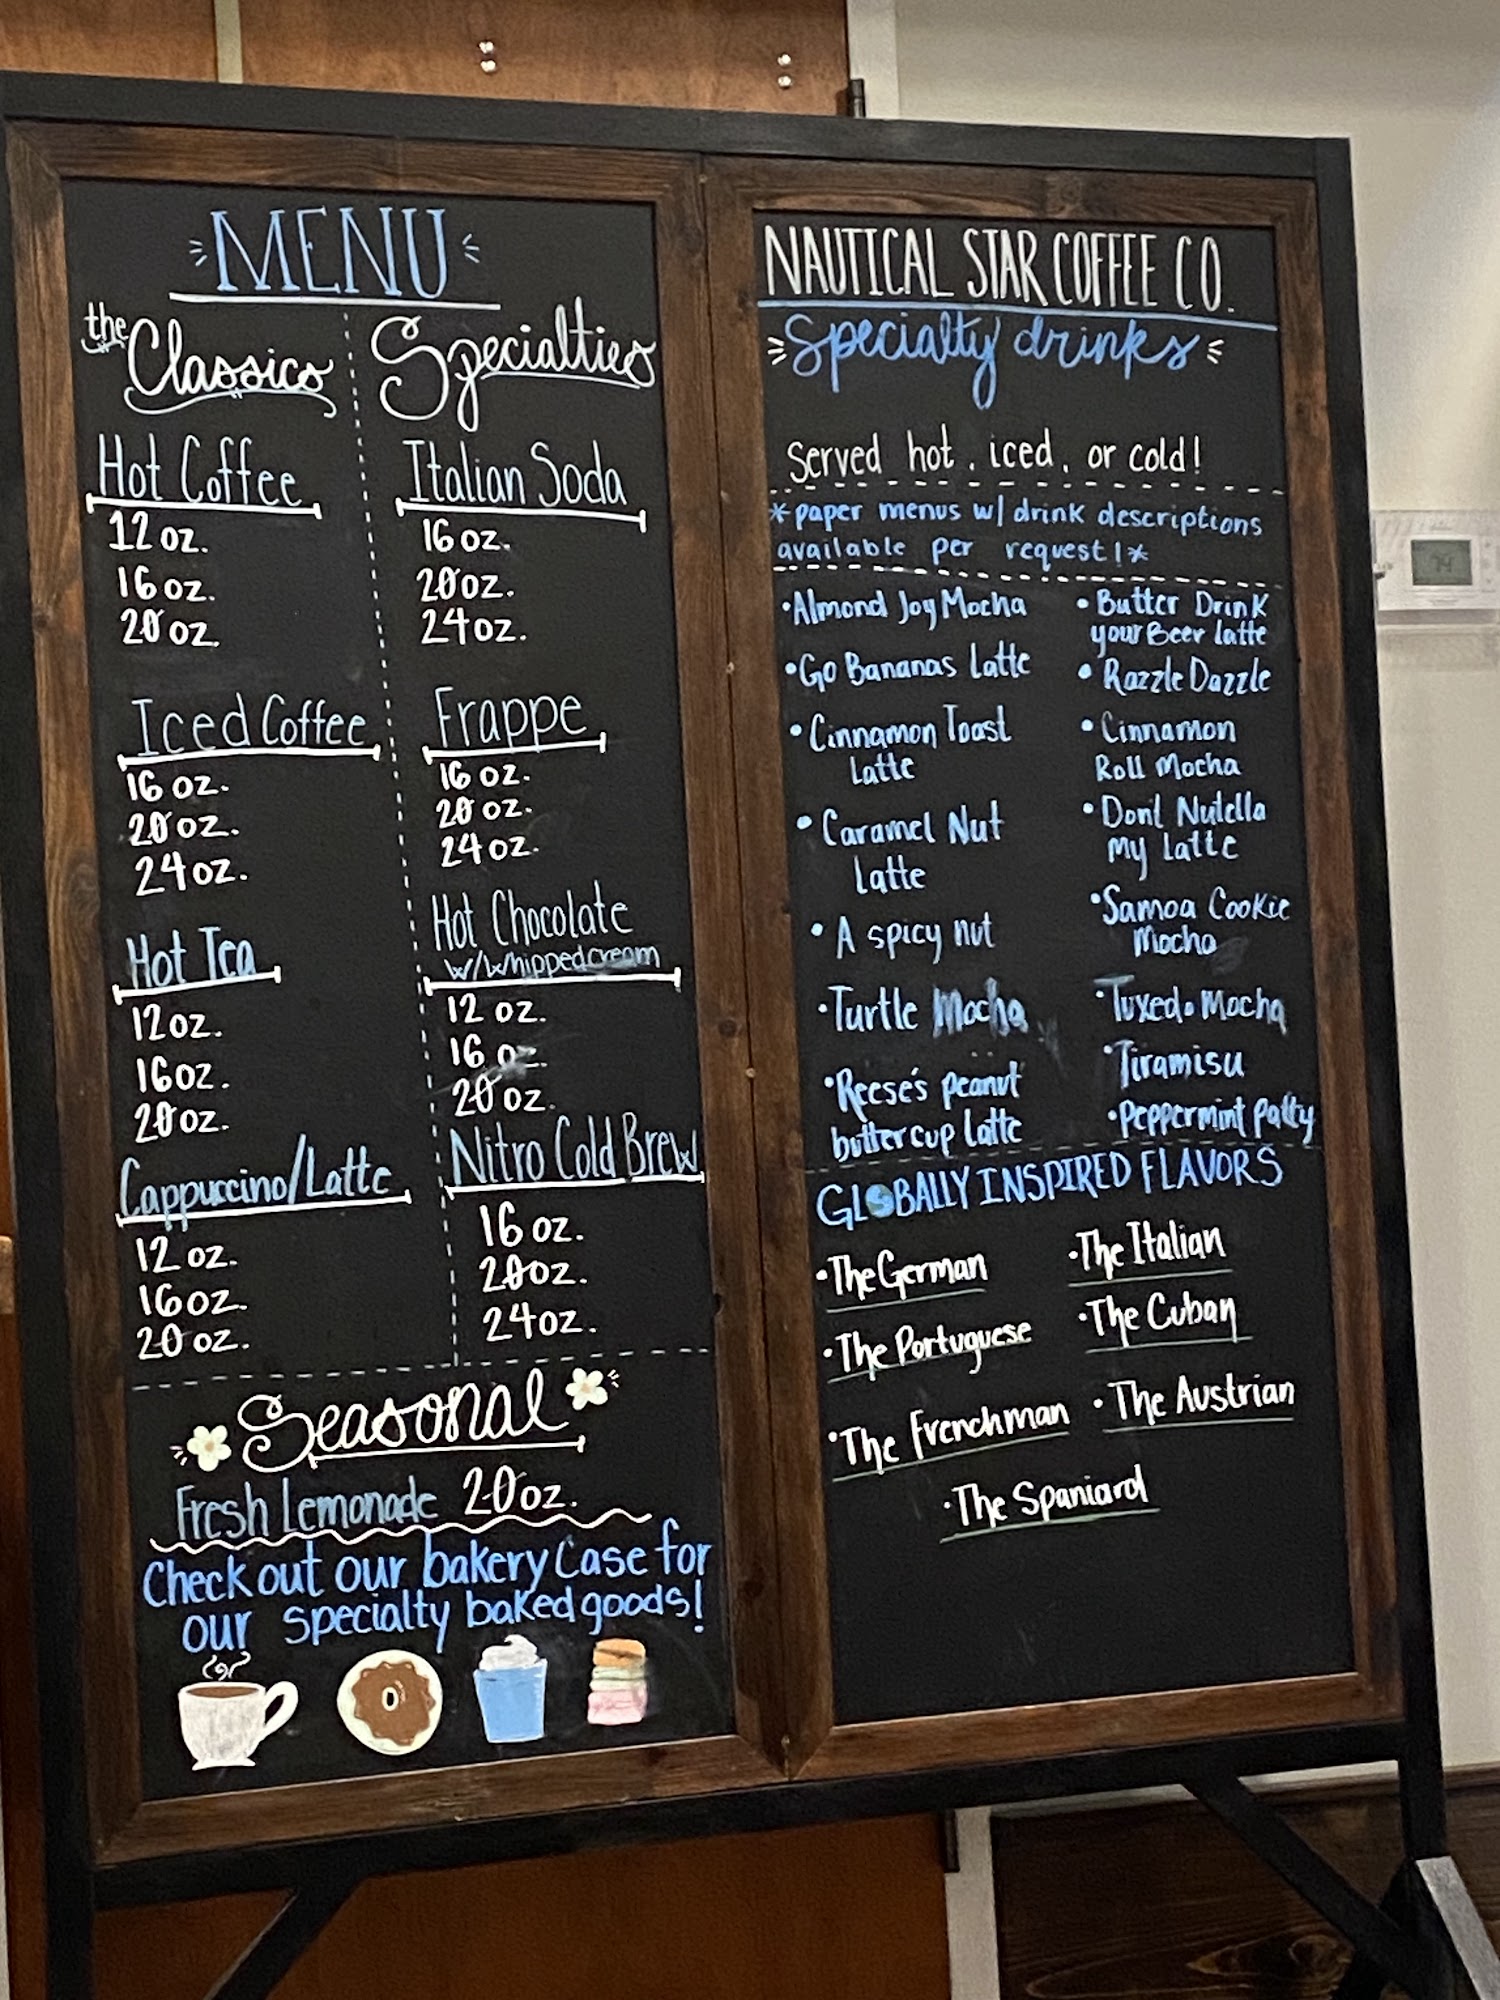 MENU
the Classics
Hot Coffee
12 oz.
16 oz.
20 oz.
Iced Coffee
16 oz.
20 oz.
24 oz.
Hot Tea
12 oz.
16 oz.
20 oz.
Cappuccino/Latte
12 oz.
16 oz.
20 oz.
Specialties
Italian Soda
16 oz.
20 oz.
24 oz.
Frappe
16 oz.
20 oz.
24 oz.
Hot Chocolate
w/whipped cream
12 oz.
16 oz.
20 oz.
Nitro Cold Brew
16 oz.
20 oz.
24 oz.
Seasonal
Fresh Lemonade 20 oz.
Check out our bakery Case for
our specialty baked goods!
NAUTICAL STAR COFFEE CO.
Specialty drinks
Served hot, iced, or cold!
*paper menus w/ drink descriptions
available per request!*
•Almond Joy Mocha
•Go Bananas Latte
•Cinnamon Toast
Latte
•Caramel Nut
Latte
•A spicy nut
•Turtle Mocha
•Reese's peanut
butter cup latte
•Butter Drink
your Beer latte
•Razzle Dazzle
•Cinnamon
Roll Mocha
•Dont Nutella
my Latte
•Samoa Cookie
Mocha
•Tuxedo Mocha
•Tiramisu
•Peppermint Patty
GLOBALLY INSPIRED FLAVORS
•The German
•The Italian
•The Portuguese
•The Cuban
•The Frenchman
•The Austrian
•The Spaniard
74